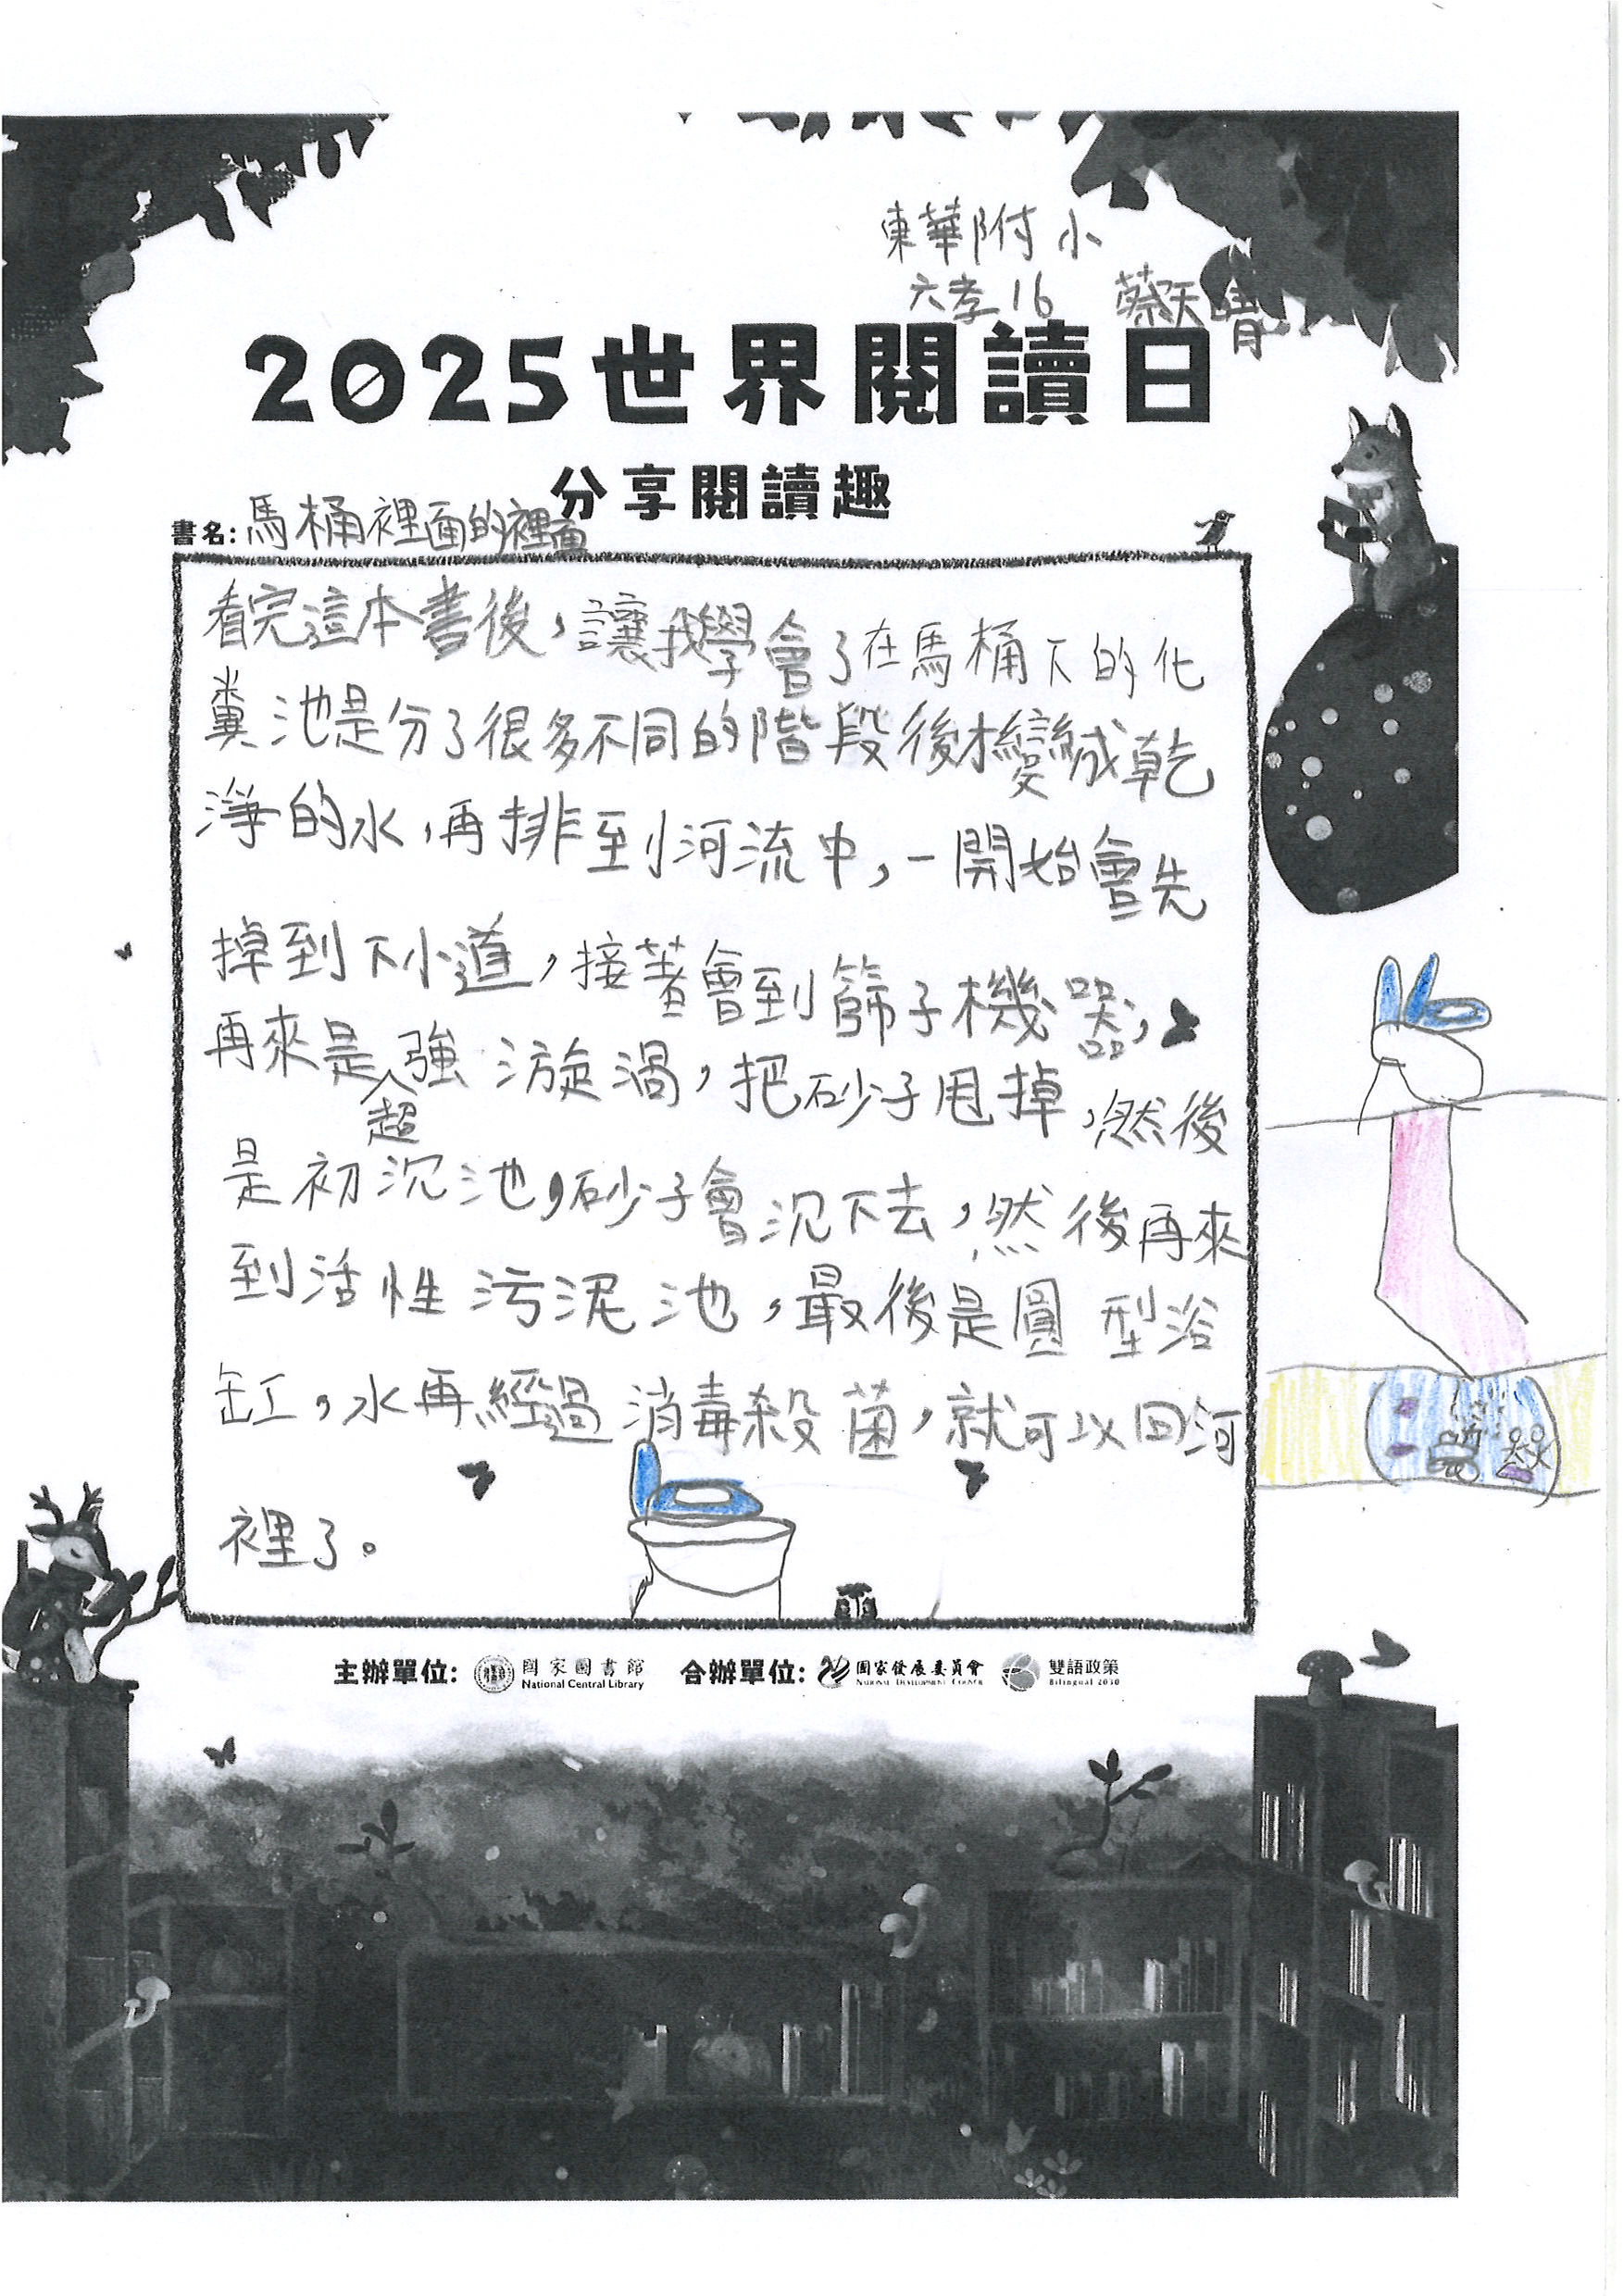 東華附小
六孝16 蔡天晴
2025世界閱讀日
分享閱讀趣
書名:馬桶裡面的裡面
看完這本書後,讓我學會了在馬桶下的化
糞池是分了很多不同的階段後才變成乾
淨的水,再排到河流中,一開始會先
掉到下小道,接著會到篩子機器,
再來是超強漩渦,把砂子甩掉,然後
是初沉池,砂子會沉下去,然後再來
到活性污泥池,最後是圓型浴
缸,水再經過消毒殺菌,就可以回河
裡了。
主辦單位: 國家圖書館 National Central Library 合辦單位: 國家發展委員會 National Development Council 雙語政策 Bilingual 2030